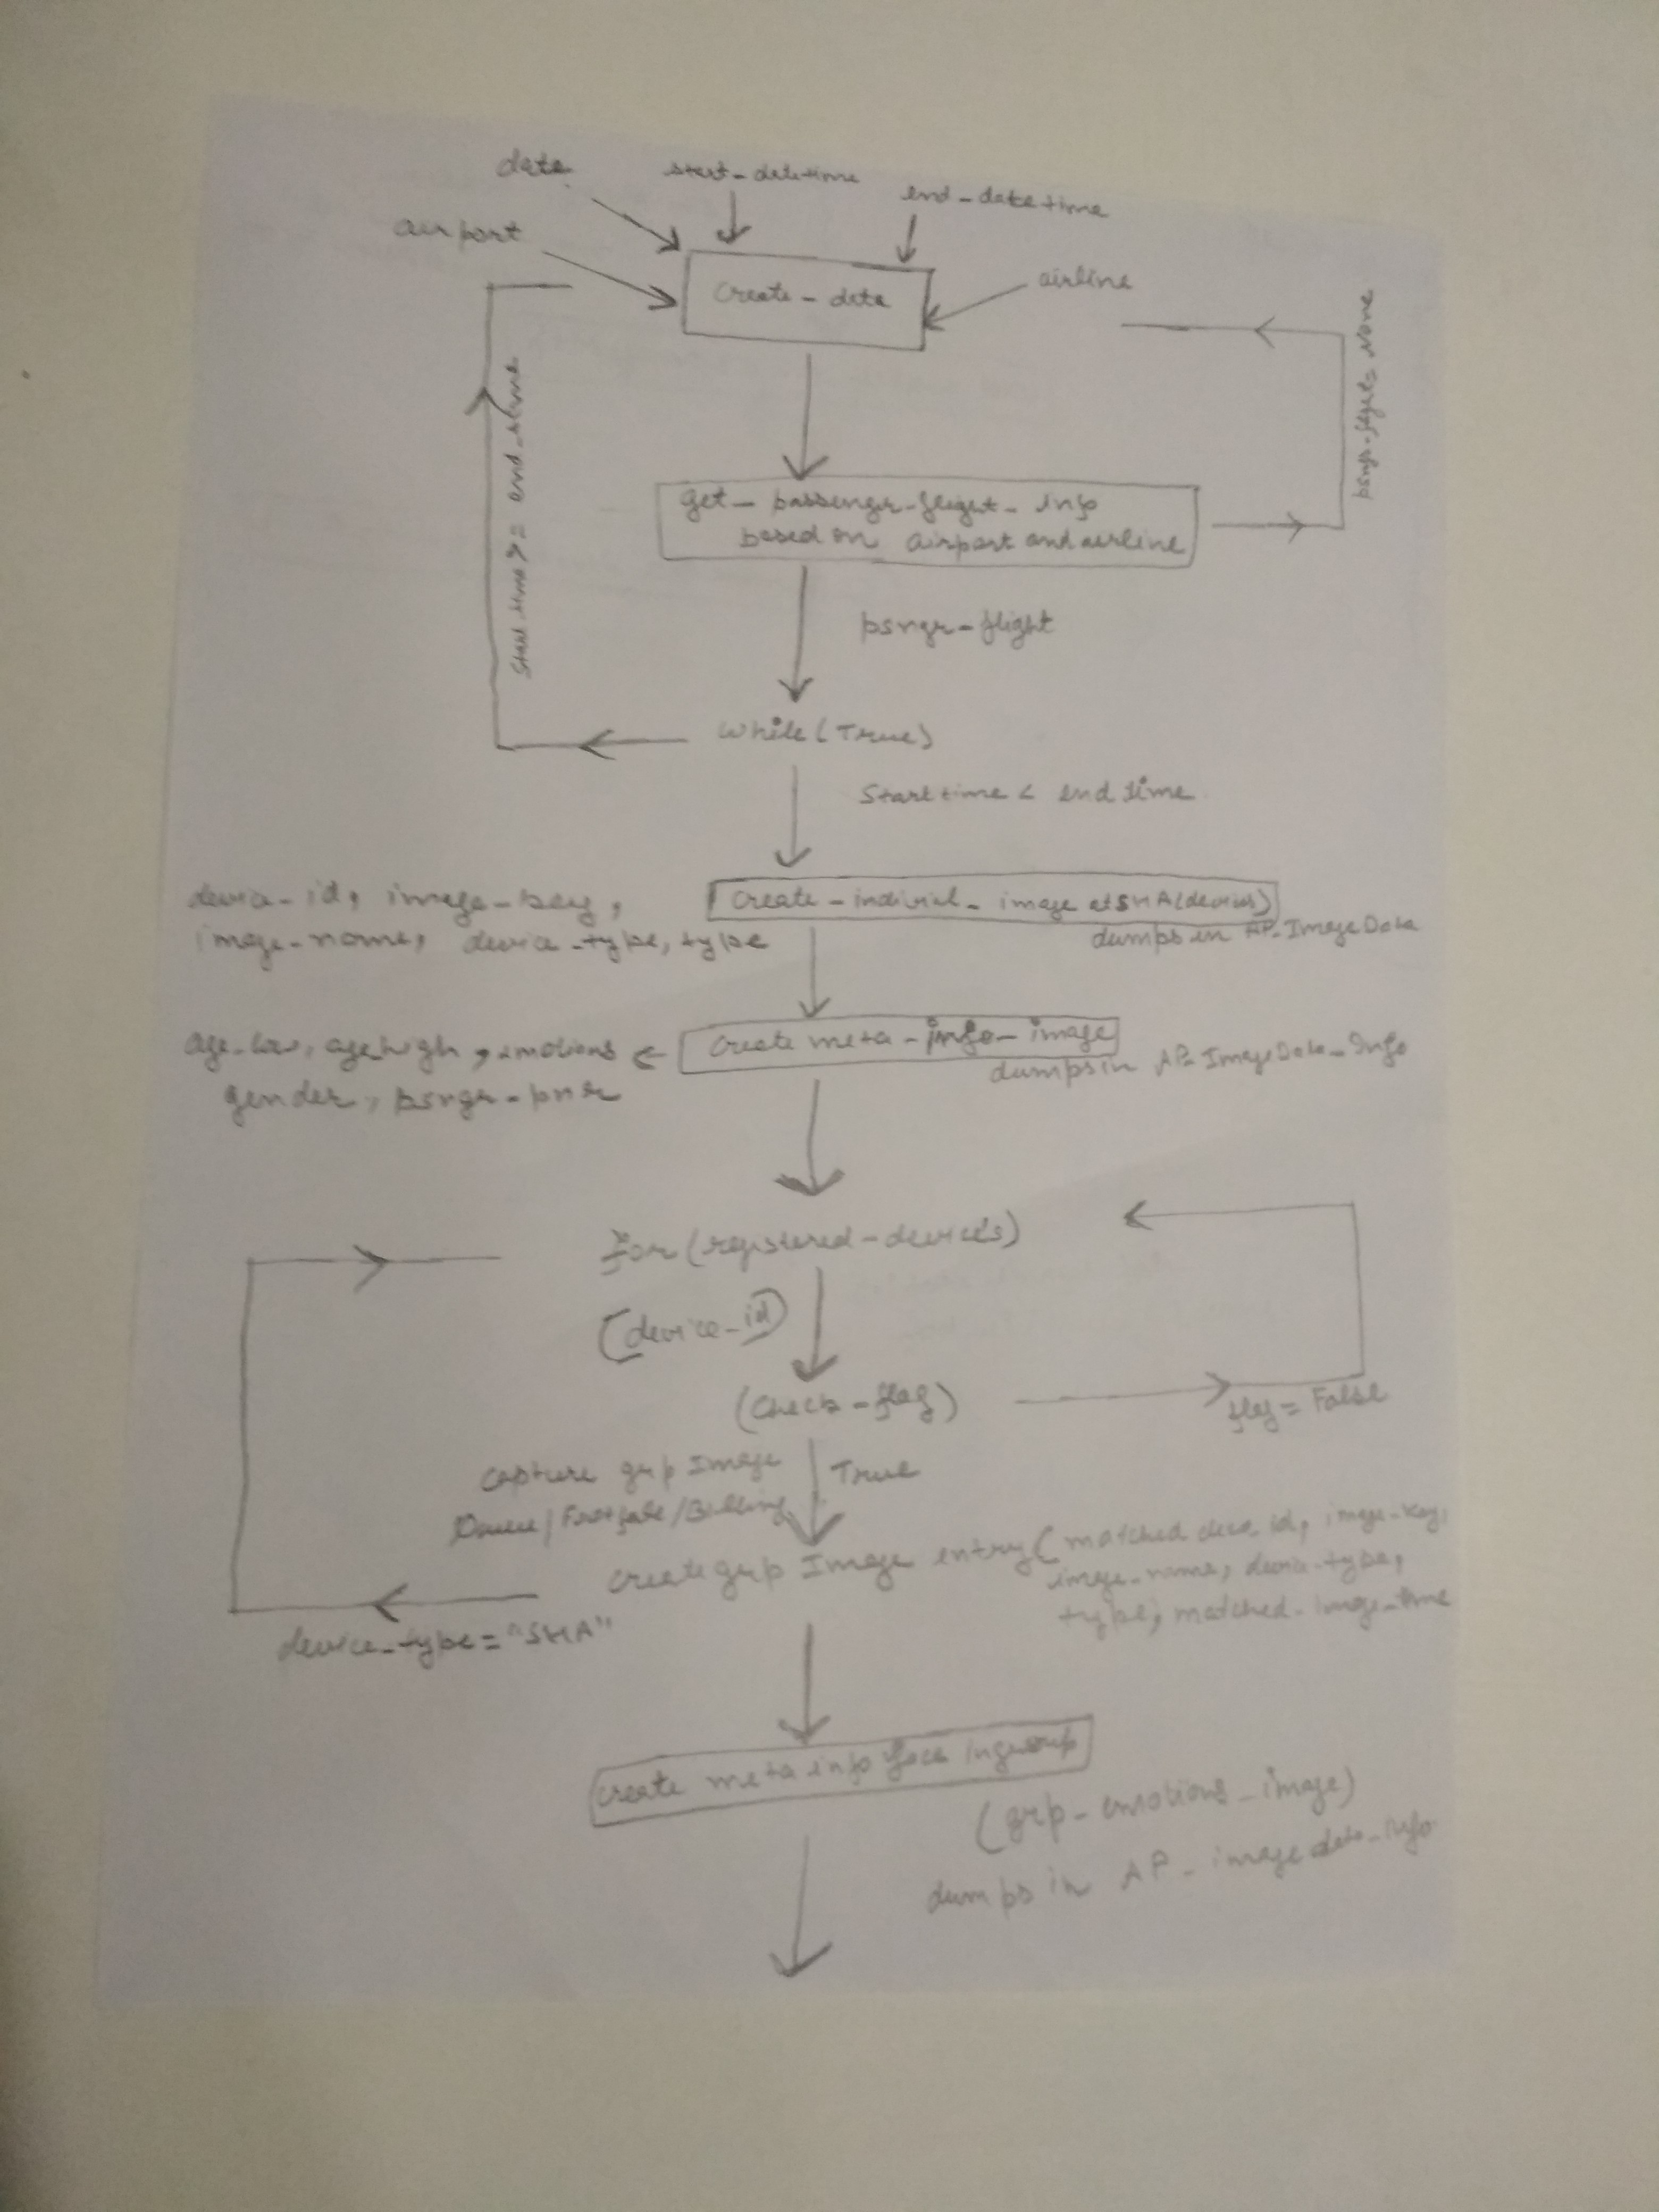 date
start-datetime
end-datetime
airport
create-data
airline
psngr-flget= None
start time >= end time
get-passenger-flight-info
based on airport and airline
psngr-flight
While(True)
Start time < end time
device-id, image-key,
image-name, device-type, type
create-indivial-image at SHA(device)
dumps in AP-ImageData
age-low, age high, emotions
gender, psngr-pnr
create meta-info-image
dumps in AP-ImageData-Info
For(registered-devices)
(device-id)
(Check-flag)
flag=False
capture grp Image
True
/Billing
create grp Image entry(matched device id, image-key,
image-name, device-type,
type, matched-image-time
device-type="SHA"
create meta info face in group
(grp-emotions-image)
dumps in AP-imagedata-info